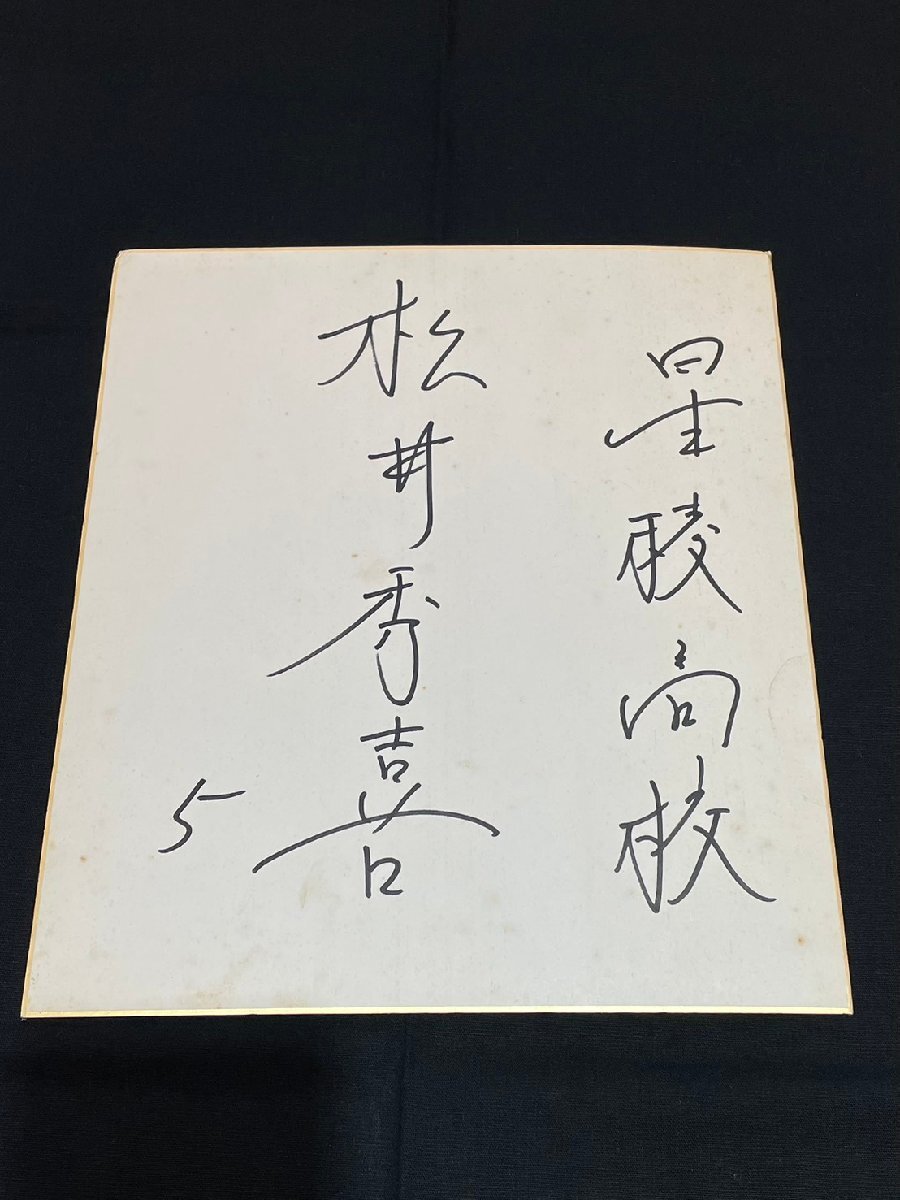 星稜高校
松井秀喜
5